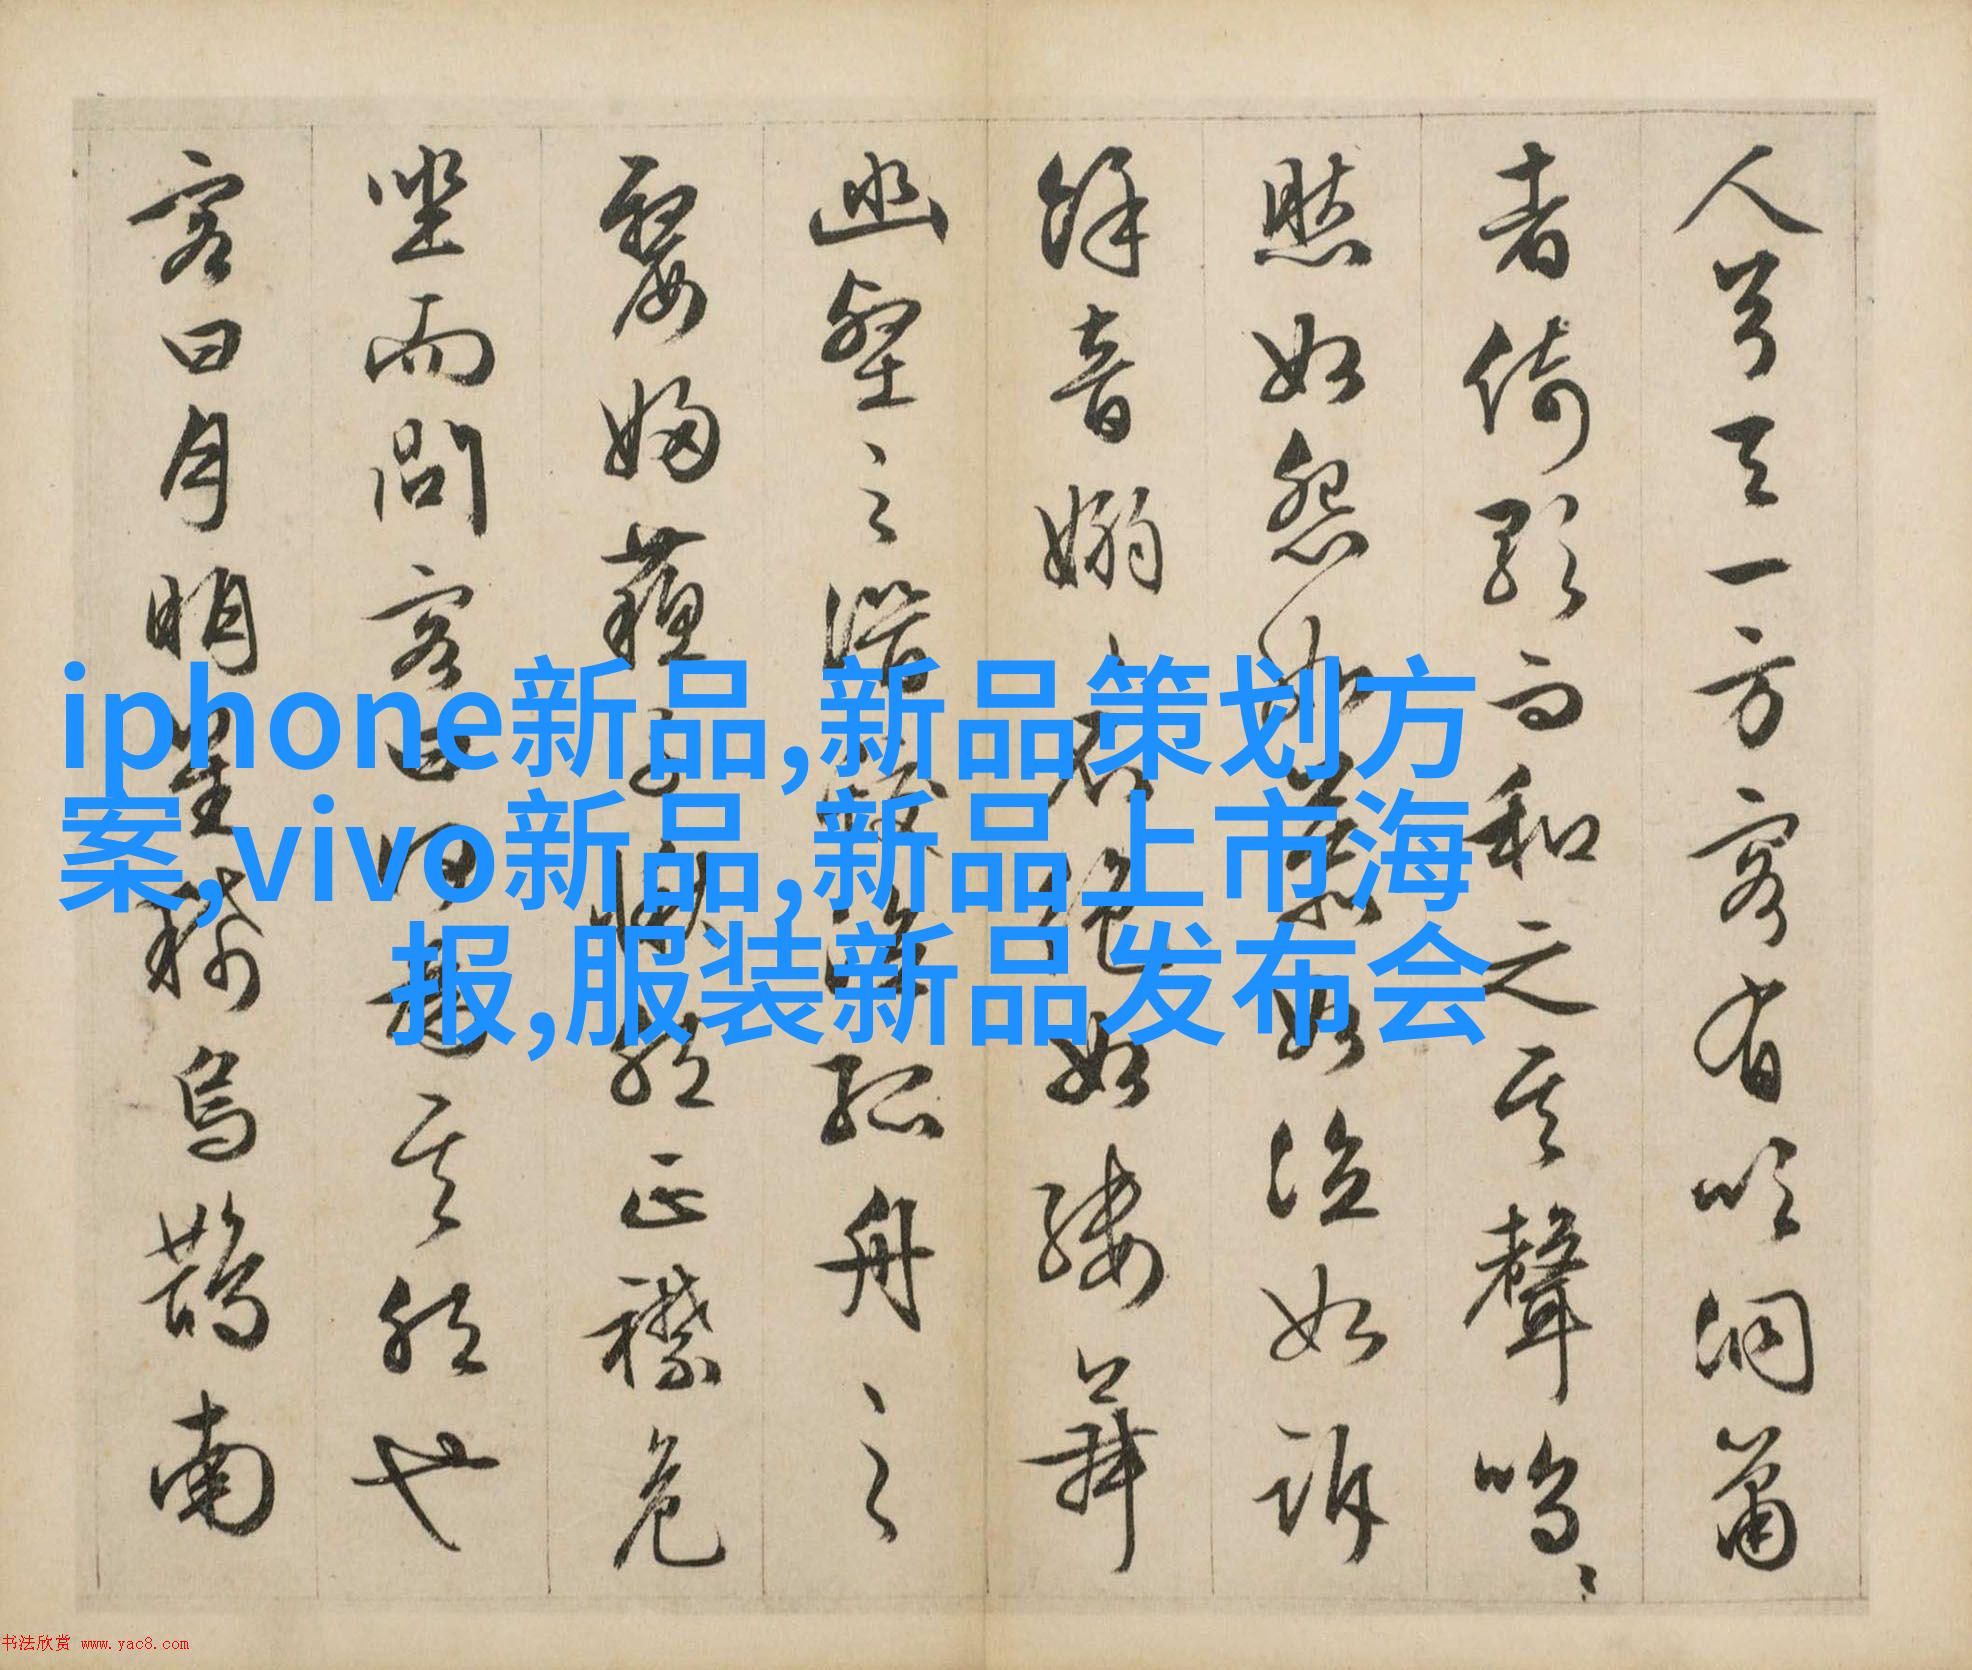 人兮天一方客有吹洞簫
者倚歌而和之其聲嗚〻
然如怨如慕如泣如訴
餘音嫋〻不絕如縷舞
幽壑之潛蛟泣孤舟之
嫠婦蘇子愀然正襟危
坐而問客曰何為其然也
客曰月明星稀烏鵲南
iphone新品,新品策划方
案,vivo新品,新品上市海
报,服装新品发布会
书法欣赏 www.yac8.com